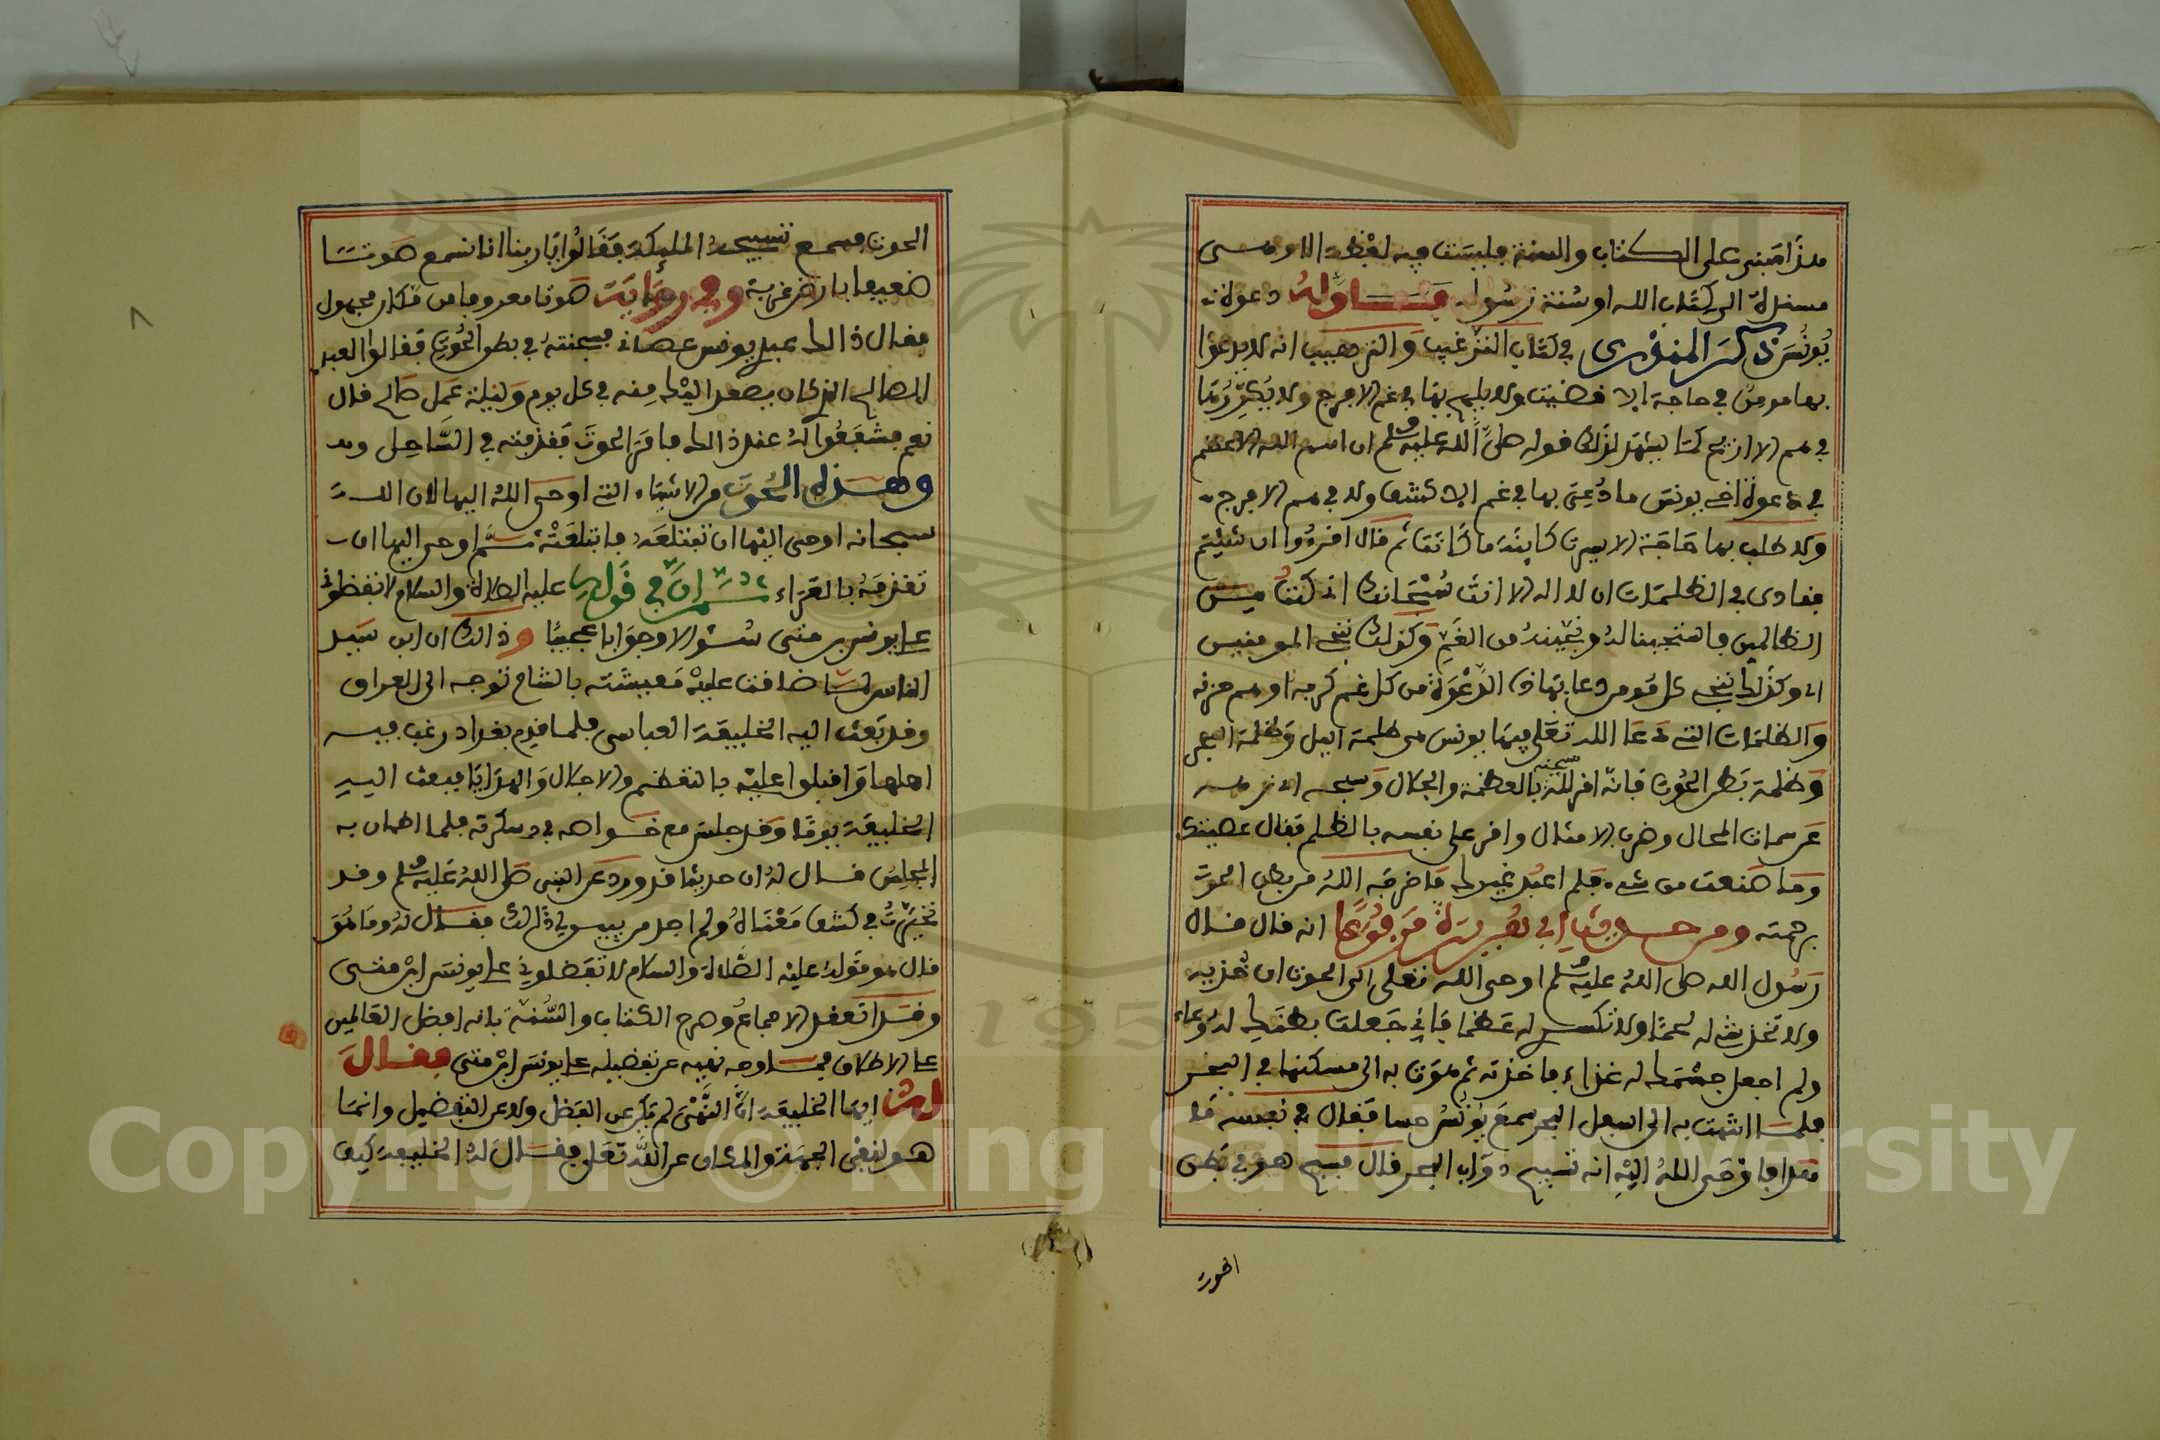 هذا مبني على الكتاب والسنة فليست فيه لفظة الا وهي
مسندة الى كتاب الله او سنة رسوله فاولها دعوة
يونس ذكر المنذري في كتاب الترغيب والترهيب انه لا يدعوا
بها مومن في حاجة الا قضيت ولا يلهم بها في غم الا فرج ولا يكررها
في هم الا ازيح كما يشهد لذلك قوله صلى الله عليه وسلم ان اسم الله الاعظم
في دعوة اخي يونس ما دعي بها في غم الا كشف ولا في هم الا فرج
ولا طلب بها حاجة الا يسرت كاينة ما كانت ثم قال اقرءوا ان شيتم
فنادى في الظلمات ان لا اله الا انت سبحانك اني كنت من
الظالمين فاستجبنا له ونجيناه من الغم وكذلك ننجي المومنين
اي وكذلك ننجي كل مومن دعا بهاذه الدعوة من كل غم كربه او هم حزنه
والظلمات التي دعا الله تعلى فيها يونس هي ظلمة اليل وظلمة البحر
وظلمة بطن الحوت فانه اقر لله سبحنه بالعظمة والجلال وسبحه ونزهه
عن سمات المحال وضرب الامثال واقر على نفسه بالظلم فقال عصيتك
وما صنعت من شيء فلم اعبد غيرك فاخرجه الله من بطن الحوت
برحمته ومن حديث ابي هريرة مرفوعا انه قال قال
رسول الله صلى الله عليه وسلم اوحى الله تعلى الى الحوت ان خذيه
ولا تخدشي له لحما ولا تكسري له عظما فاني جعلت بطنك له وعاء
ولم اجعل جسمك له غذاء فاخذته ثم هوت به الى مسكنها في البحر
فلما انتهت به الى اسفل البحر سمع يونس حسا فقال في نفسه ما
هذا فاوحى الله اليه انه تسبيح دواب البحر قال فسبح هو في بطن
الحوت
الحوت فسمع تسبيحه المليكة فقالوا يا ربنا انا نسمع صوتا
ضعيفا بارض غربة وفي رواية صوتا معروفا من مكان مجهول
فقال ذالك عبدي يونس عصاني فسجنته في بطن الحوت فقالوا العبد
الصالح الذي كان يصعد اليك منه في كل يوم وليلة عمل صالح قال
نعم فشفعوا له عند ذالك فامر الحوت فقذفته في الساحل
وهذه الحوت من الاشياء التي اوحى الله اليها لان الله
سبحانه اوحى اليها ان تبتلعه فابتلعته ثم اوحى اليها ان
تقذفه بالعراء ثم ان في قوله عليه الصلاة والسلام لا تفضلوني
على يونس بن متى سؤالا وجوابا عجيبا وذالك ان ابن سيد
الناس لما ضاقت عليه معيشته بالشام توجه الى العراق
وقد بعث اليه الخليفة العباسي فلما قدم بغداد رغب فيه
اهلها واقبلوا عليه بالتعظيم والاجلال والهدايا فبعث اليه
الخليفة يوما وقد جلس مع خواصه في دسكرته فلما اطمان به
المجلس قال له ان حديثا قد ورد عن النبي صلى الله عليه وسلم وقد
تحيرت في كشف معناه ولم اجد من يبين لي ذالك فقال له وما هو
قال هو قوله عليه الصلاة والسلام لا تفضلوني على يونس ابن متى
وقد انعقد الاجماع وصرح الكتاب والسنة بانه افضل العالمين
على الاطلاق فما وجه نهيه عن تفضيله على يونس ابن متى فقال
له ايها الخليفة ان النهي لم يكن عن الفضل ولا عن التفضيل وانما
هو لنفي الجهة والمكان عن الله تعلى فقال له الخليفة كيف